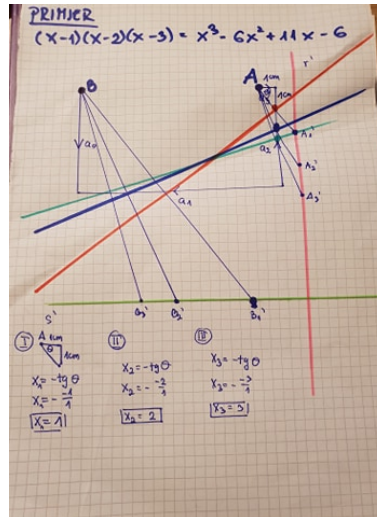 PRIMJER
(x-1)(x-2)(x-3) = x³ - 6x² + 11x - 6
r'
B
A
1cm
1cm
θ
a₀
a₂
A₁'
A₂'
A₃'
a₁
s'
B₃'
B₂'
B₁'
I
A 1cm
θ
1cm
x₁ = -tgθ
x₁ = - -1/1
x₁ = 1
II
x₂ = -tgθ
x₂ = - -2/1
x₂ = 2
III
x₃ = -tgθ
x₃ = - -3/1
x₃ = 3